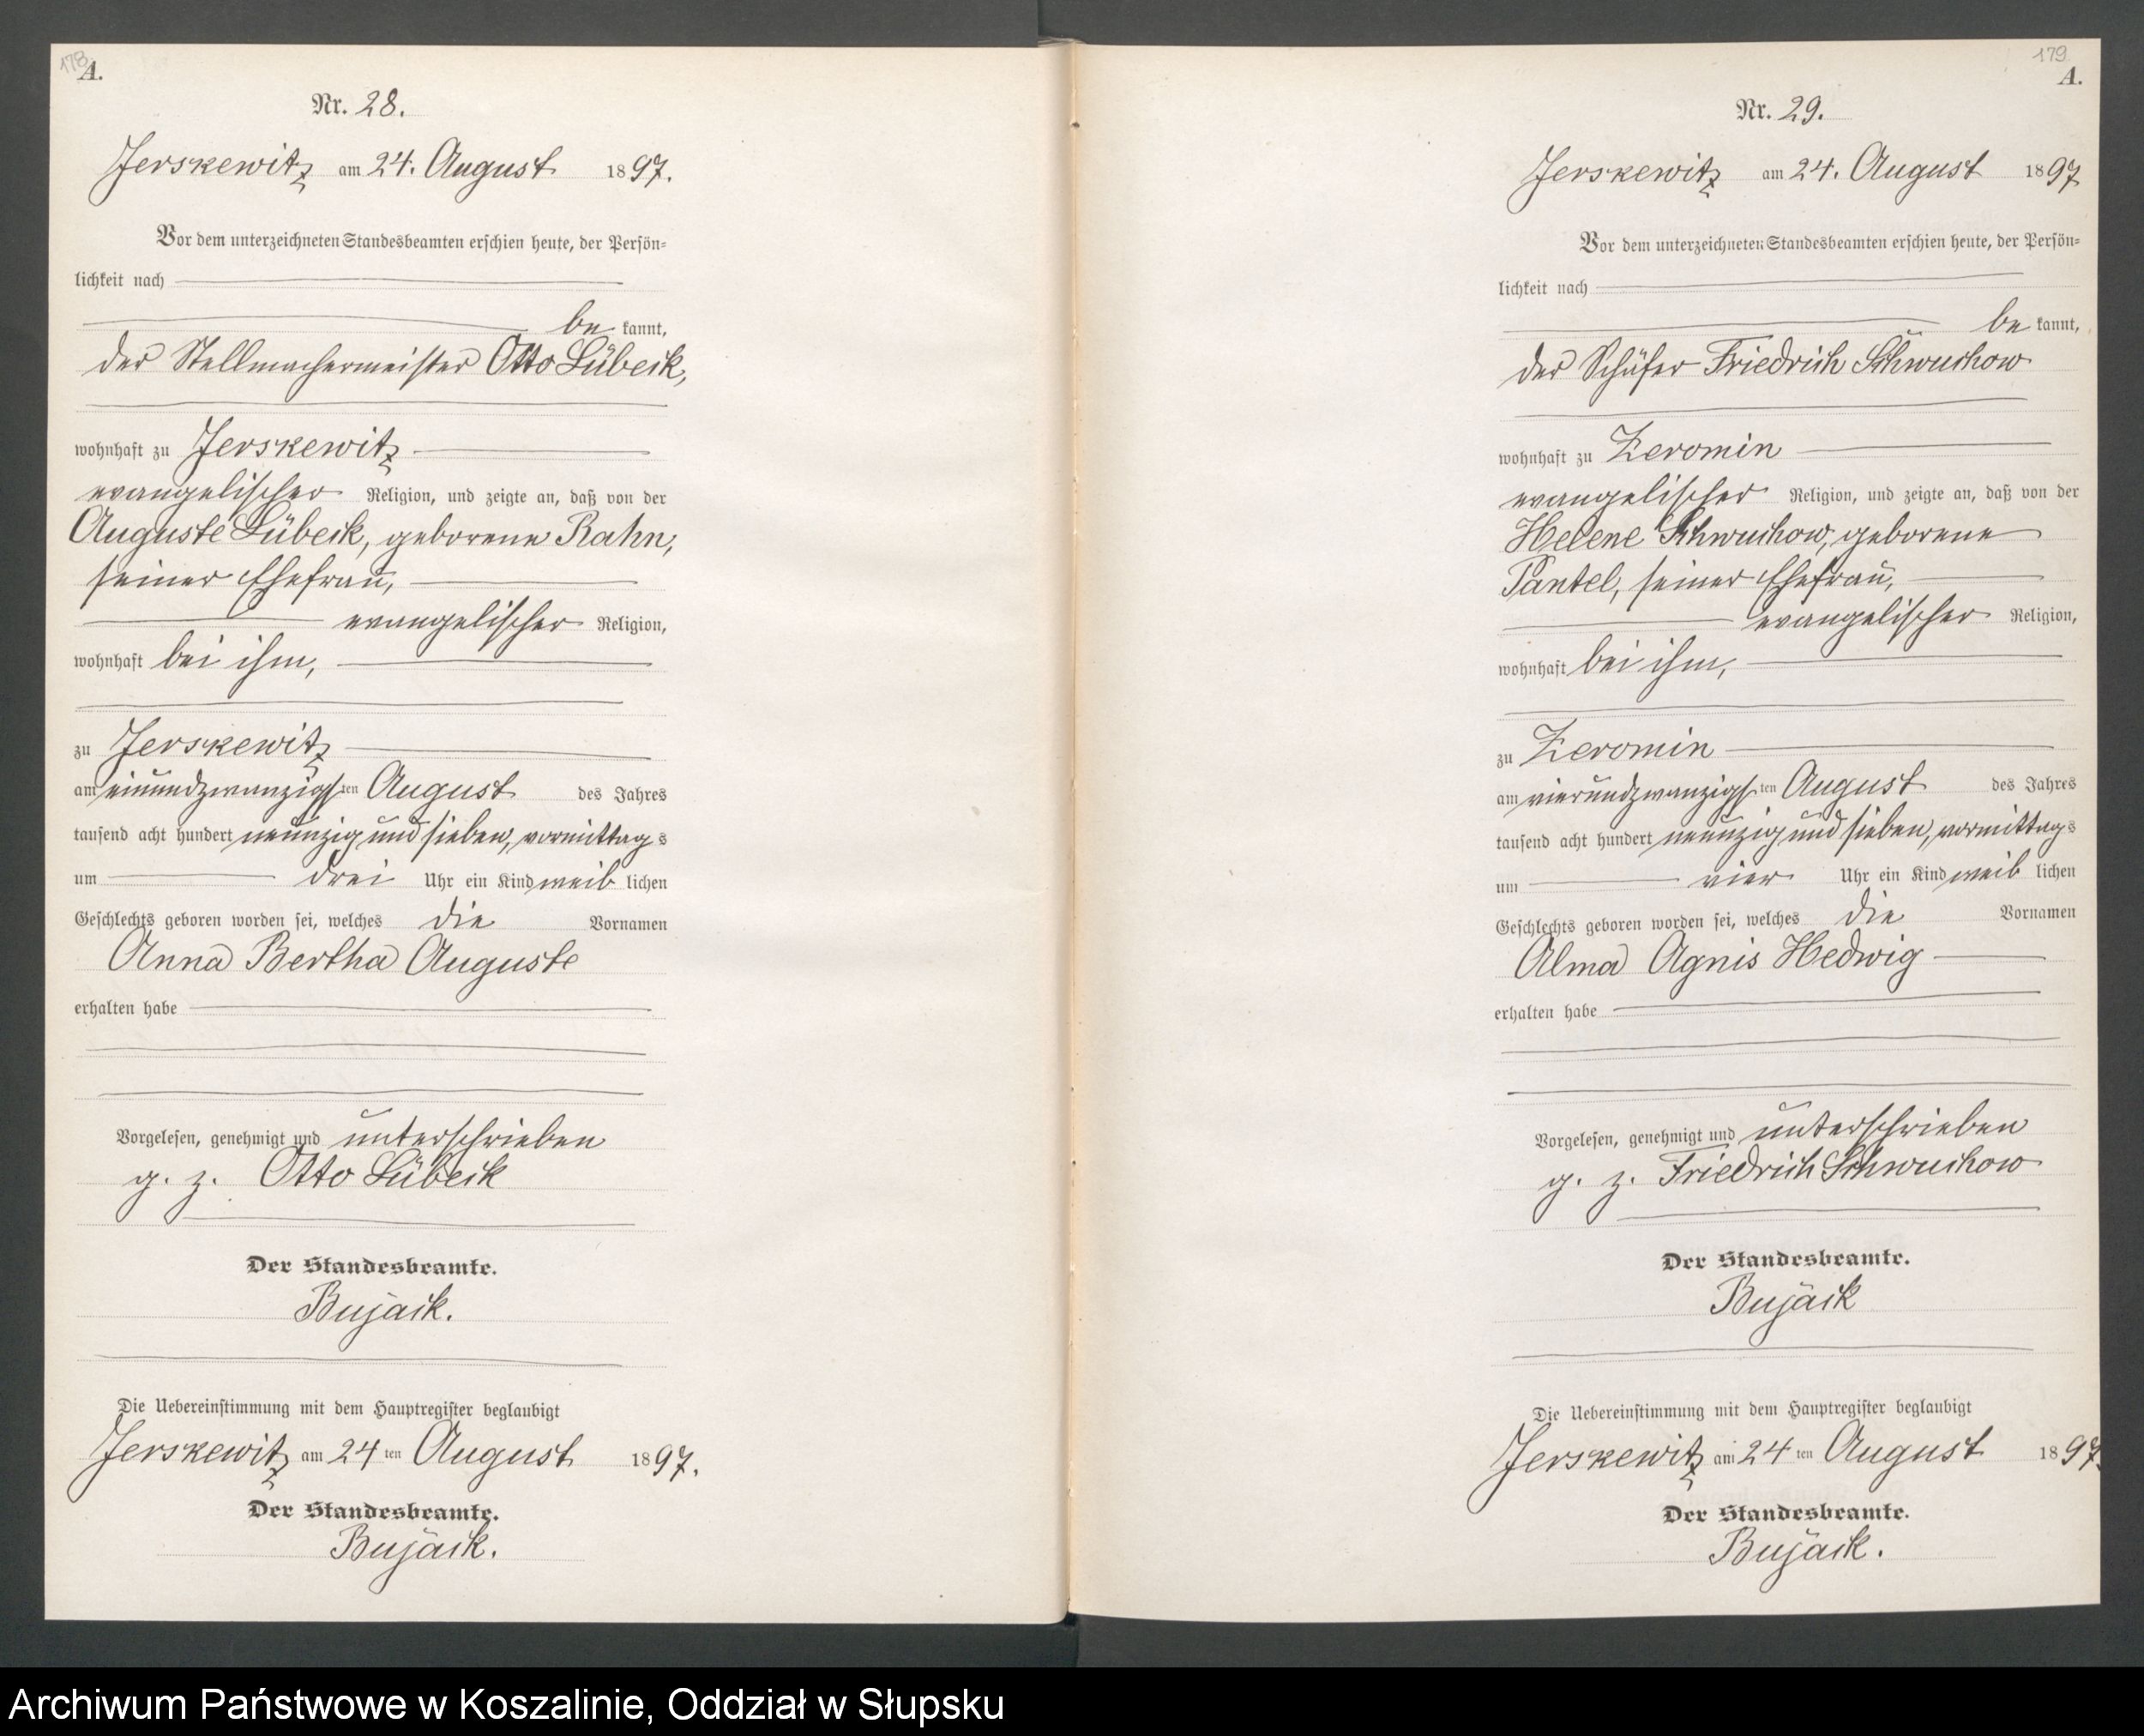 178
A.
Nr. 28.
Jerskewitz am 24. August 1897.
Vor dem unterzeichneten Standesbeamten erschien heute, der Persön=
lichkeit nach
be kannt,
der Stellmachermeister Otto Lübeck,
wohnhaft zu Jerskewitz
evangelischer Religion, und zeigte an, daß von der
Auguste Lübeck, geborene Rahn,
seiner Ehefrau,
evangelischer Religion,
wohnhaft bei ihm,
zu Jerskewitz
am einundzwanzigsten August des Jahres
tausend acht hundert neunzig und sieben, vormittags
um drei Uhr ein Kind weiblichen
Geschlechts geboren worden sei, welches die Vornamen
Anna Bertha Auguste
erhalten habe
Vorgelesen, genehmigt und unterschrieben
g. z. Otto Lübeck
Der Standesbeamte.
Bujack.
Die Uebereinstimmung mit dem Hauptregister beglaubigt
Jerskewitz am 24ten August 1897.
Der Standesbeamte.
Bujack.
179
A.
Nr. 29.
Jerskewitz am 24. August 1897
Vor dem unterzeichneten Standesbeamten erschien heute, der Persön=
lichkeit nach
be kannt,
der Schäfer Friedrich Schwuchow
wohnhaft zu Zeromin
evangelischer Religion, und zeigte an, daß von der
Helene Schwuchow, geborene
Pantel, seiner Ehefrau,
evangelischer Religion,
wohnhaft bei ihm,
zu Zeromin
am vierundzwanzigsten August des Jahres
tausend acht hundert neunzig und sieben, vormittags
um vier Uhr ein Kind weiblichen
Geschlechts geboren worden sei, welches die Vornamen
Alma Agnis Hedwig
erhalten habe
Vorgelesen, genehmigt und unterschrieben
g. z. Friedrich Schwuchow
Der Standesbeamte.
Bujack
Die Uebereinstimmung mit dem Hauptregister beglaubigt
Jerskewitz am 24ten August 1897.
Der Standesbeamte.
Bujack.
Archiwum Państwowe w Koszalinie, Oddział w Słupsku